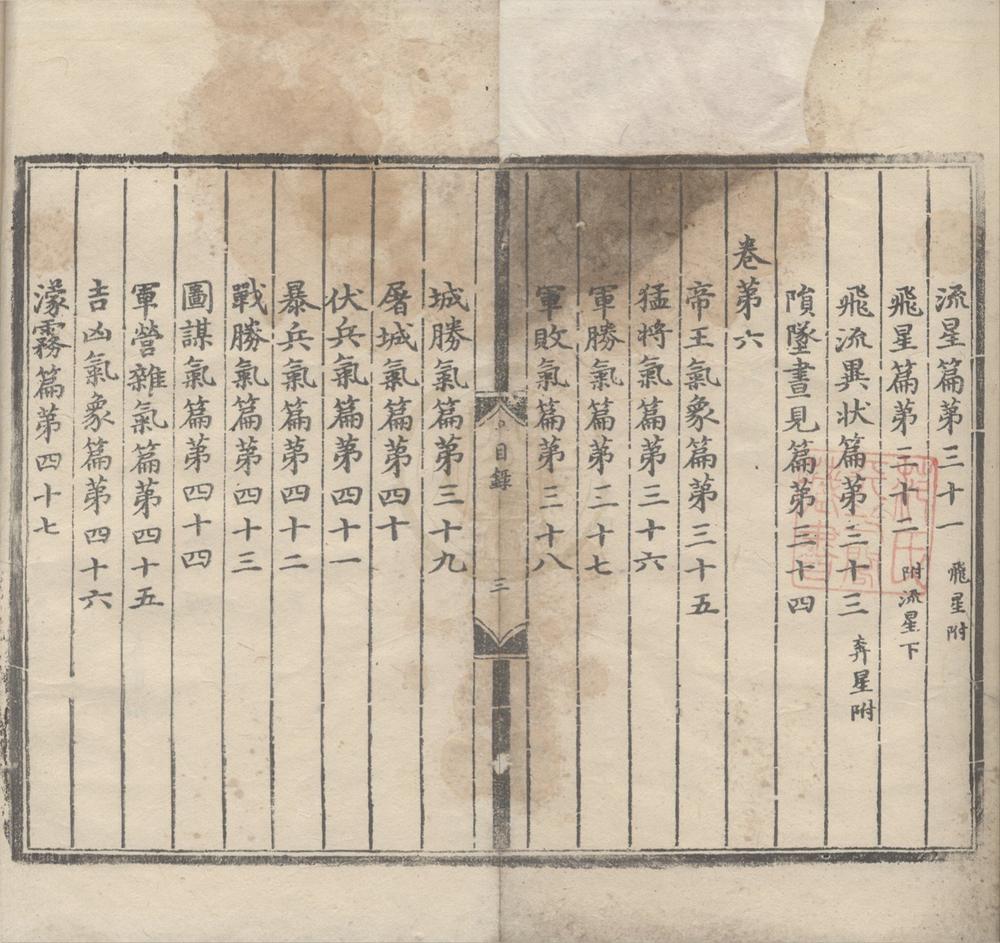 流星篇第三十一 飛星附
飛星篇第三十二 附流星下
飛流異状篇第三十三 奔星附
隕墜晝見篇第三十四
卷第六
帝王氣象篇第三十五
猛將氣篇第三十六
軍勝氣篇第三十七
軍敗氣篇第三十八
目錄
三
城勝氣篇第三十九
屠城氣篇第四十
伏兵氣篇第四十一
暴兵氣篇第四十二
戰勝氣篇第四十三
圖謀氣篇第四十四
軍營雜氣篇第四十五
吉凶氣象篇第四十六
濛霧篇第四十七